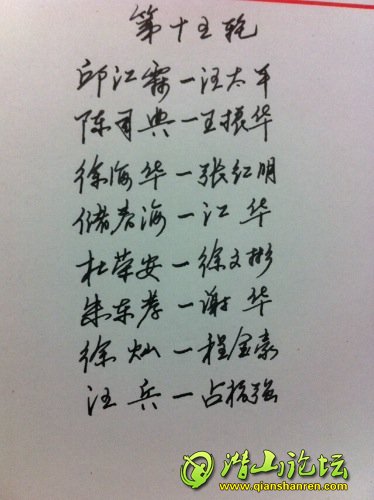 第十五轮
邱江霖一汪太平
陈司典一王振华
徐海华一张红明
储春海一江华
杜荣安一徐文彬
朱东孝一谢华
徐灿一程金豪
汪兵一占格强
潜山论坛
www.qianshanren.com